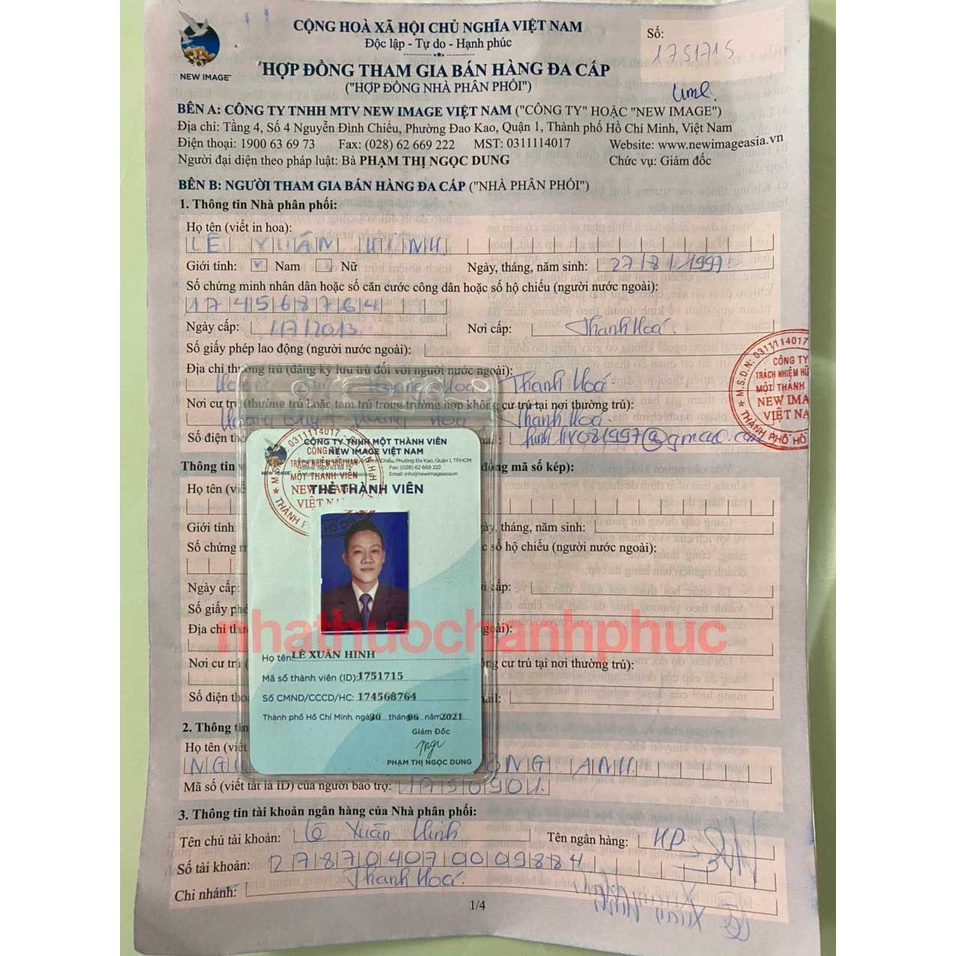 CỘNG HOÀ XÃ HỘI CHỦ NGHĨA VIỆT NAM
Độc lập - Tự do - Hạnh phúc
Số:
1751715
NEW IMAGE
HỢP ĐỒNG THAM GIA BÁN HÀNG ĐA CẤP
("HỢP ĐỒNG NHÀ PHÂN PHỐI")
BÊN A: CÔNG TY TNHH MTV NEW IMAGE VIỆT NAM ("CÔNG TY" HOẶC "NEW IMAGE")
Địa chỉ: Tầng 4, Số 4 Nguyễn Đình Chiểu, Phường Đao Kao, Quận 1, Thành phố Hồ Chí Minh, Việt Nam
Điện thoại: 1900 63 69 73 Fax: (028) 62 669 222 MST: 0311114017 Website: www.newimageasia.vn
Người đại diện theo pháp luật: Bà PHẠM THỊ NGỌC DUNG Chức vụ: Giám đốc
BÊN B: NGƯỜI THAM GIA BÁN HÀNG ĐA CẤP ("NHÀ PHÂN PHỐI")
1. Thông tin Nhà phân phối:
Họ tên (viết in hoa):
LÊ XUÂN HINH
Giới tính: Nam Nữ Ngày, tháng, năm sinh: 27/8/1997
Số chứng minh nhân dân hoặc số căn cước công dân hoặc số hộ chiếu (người nước ngoài):
174568764
Ngày cấp: 1/7/2013 Nơi cấp: Thanh Hoá.
Số giấy phép lao động (người nước ngoài):
Địa chỉ thường trú (đăng ký lưu trú đối với người nước ngoài):
Thanh Hoá
Nơi cư trú (thường trú hoặc tạm trú trong trường hợp không cư trú tại nơi thường trú):
Thanh Hoá
Số điện
M.S.D.N: 0311114017
CÔNG TY
TRÁCH NHIỆM HỮU
MỘT THÀNH
NEW IMA
VIỆT NA
THÀNH PHỐ HỒ
CÔNG TY TNHH MỘT THÀNH VIÊN
NEW IMAGE VIỆT NAM
Fax: (028) 62 669 222
Email: info@newimageasia.vn
THẺ THÀNH VIÊN
Họ tên: LÊ XUÂN HINH
Mã số thành viên (ID): 1751715
Số CMND/CCCD/HC: 174568764
Thành phố Hồ Chí Minh, ngày 30 tháng 06 năm 2021
Giám Đốc
PHẠM THỊ NGỌC DUNG
nhathuochanhphuc
Thông dùng mã số kép):
Họ tên
Giới tính: tháng, năm sinh:
Số chứng số hộ chiếu (người nước ngoài):
Ngày cấp: cấp:
Số giấy
Địa chỉ
Nơi cư trú cư trú tại nơi thường trú):
Số điện
2. Thông
Họ tên (viết
ANH
Mã số (viết tắt là ID) của người bảo trợ:
3. Thông tin tài khoản ngân hàng của Nhà phân phối:
Tên chủ tài khoản: Lê Xuân Hinh Tên ngân hàng:
Số tài khoản:
Chi nhánh: Thanh Hoá.
1/4